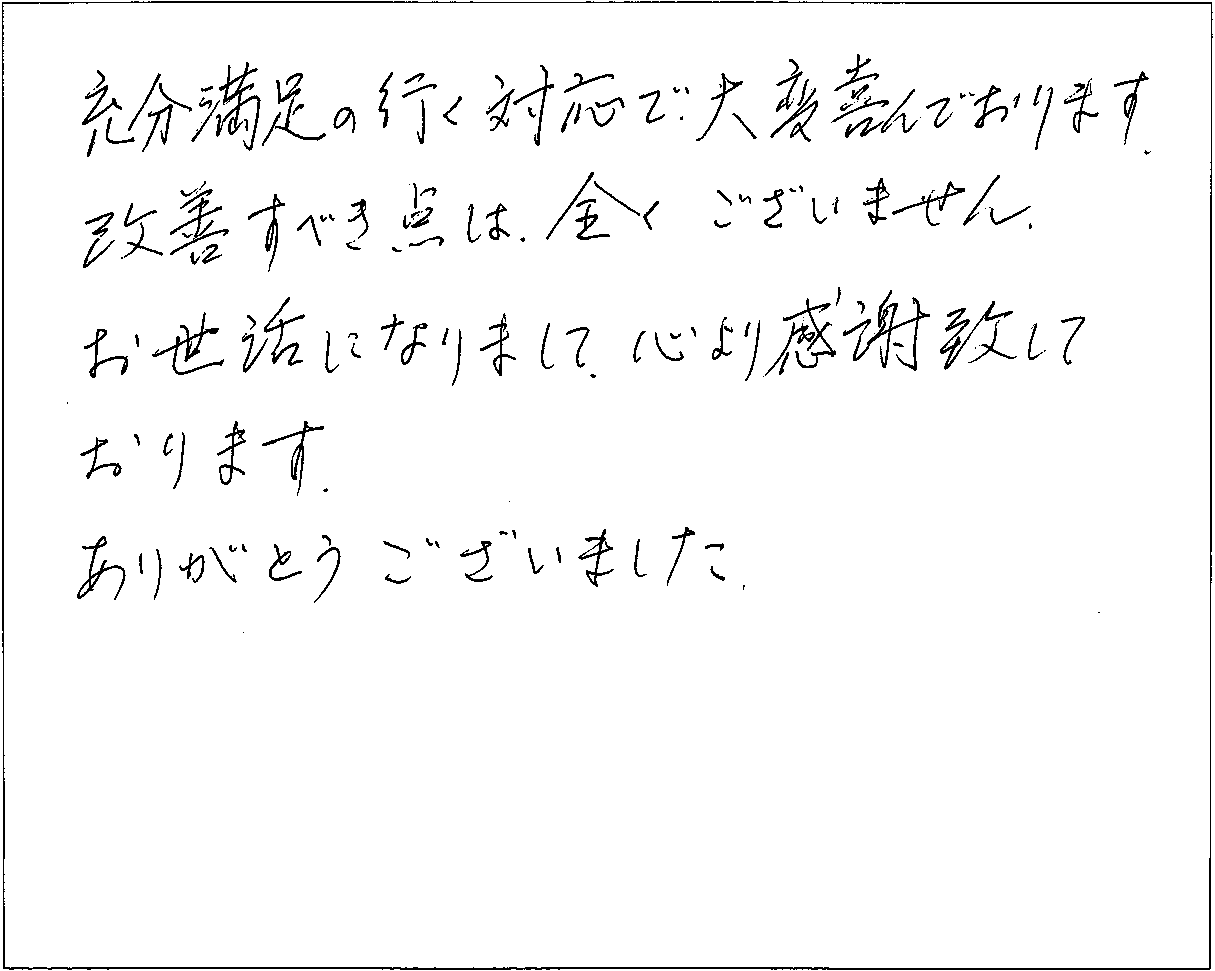 充分満足の行く対応で、大変喜んでおります。
改善すべき点は、全くございません。
お世話になりまして、心より感謝致して
おります。
ありがとうございました。